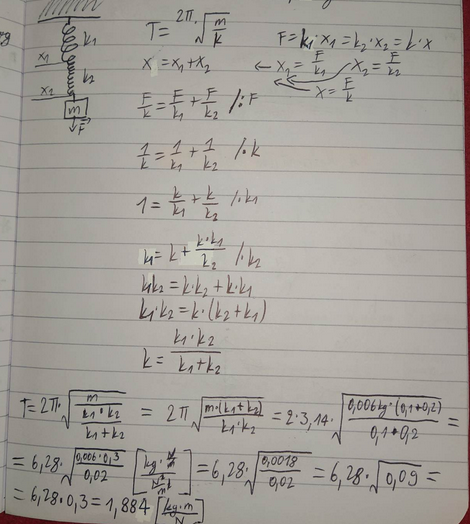 k₁
x₁
k₂
x₂
m
F
T = 2π √(m/k)
F = k₁·x₁ = k₂·x₂ = k·x
x = x₁ + x₂
← x₁ = F/k₁ x₂ = F/k₂
x = F/k
F/k = F/k₁ + F/k₂ /:F
1/k = 1/k₁ + 1/k₂ /·k
1 = k/k₁ + k/k₂ /·k₁
k₁ = k + k·k₁/k₂ /·k₂
k₁k₂ = k·k₂ + k·k₁
k₁·k₂ = k·(k₂+k₁)
k = k₁·k₂/(k₁+k₂)
T = 2π·√(m/(k₁·k₂/(k₁+k₂))) = 2π √(m·(k₁+k₂)/(k₁·k₂)) = 2·3,14·√(0,006kg·(0,1+0,2)/(0,1·0,2)) =
= 6,28·√(0,006·0,3/0,02) [kg·N/m / N²/m²] = 6,28·√(0,0018/0,02) = 6,28·√0,09 =
= 6,28·0,3 = 1,884 [kg·m/N]